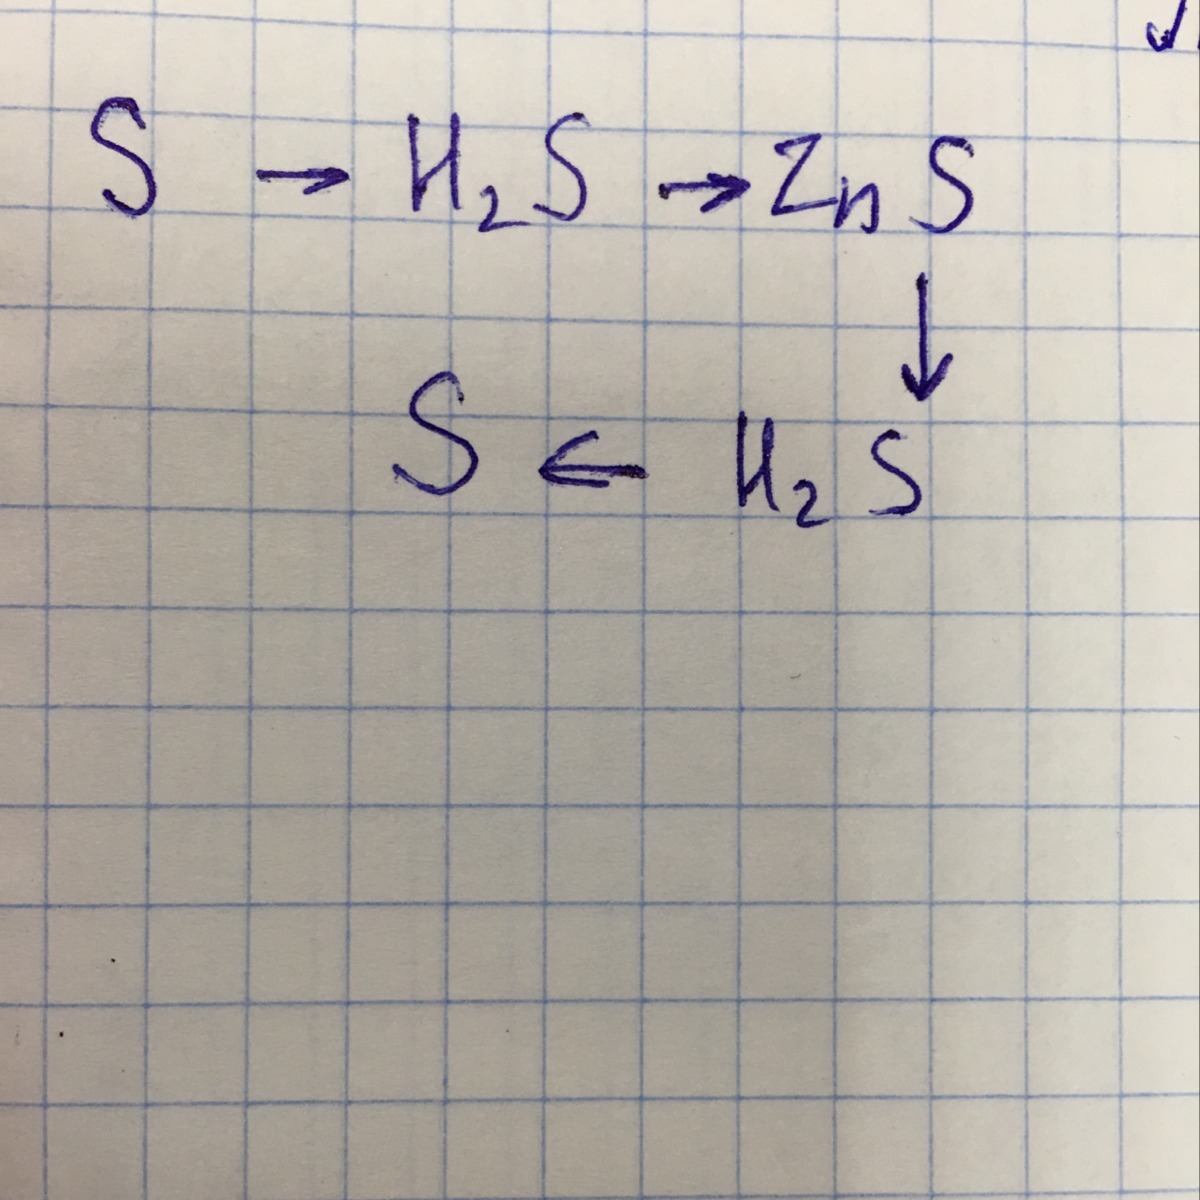 S → H₂S → ZnS
↓
S ← H₂S